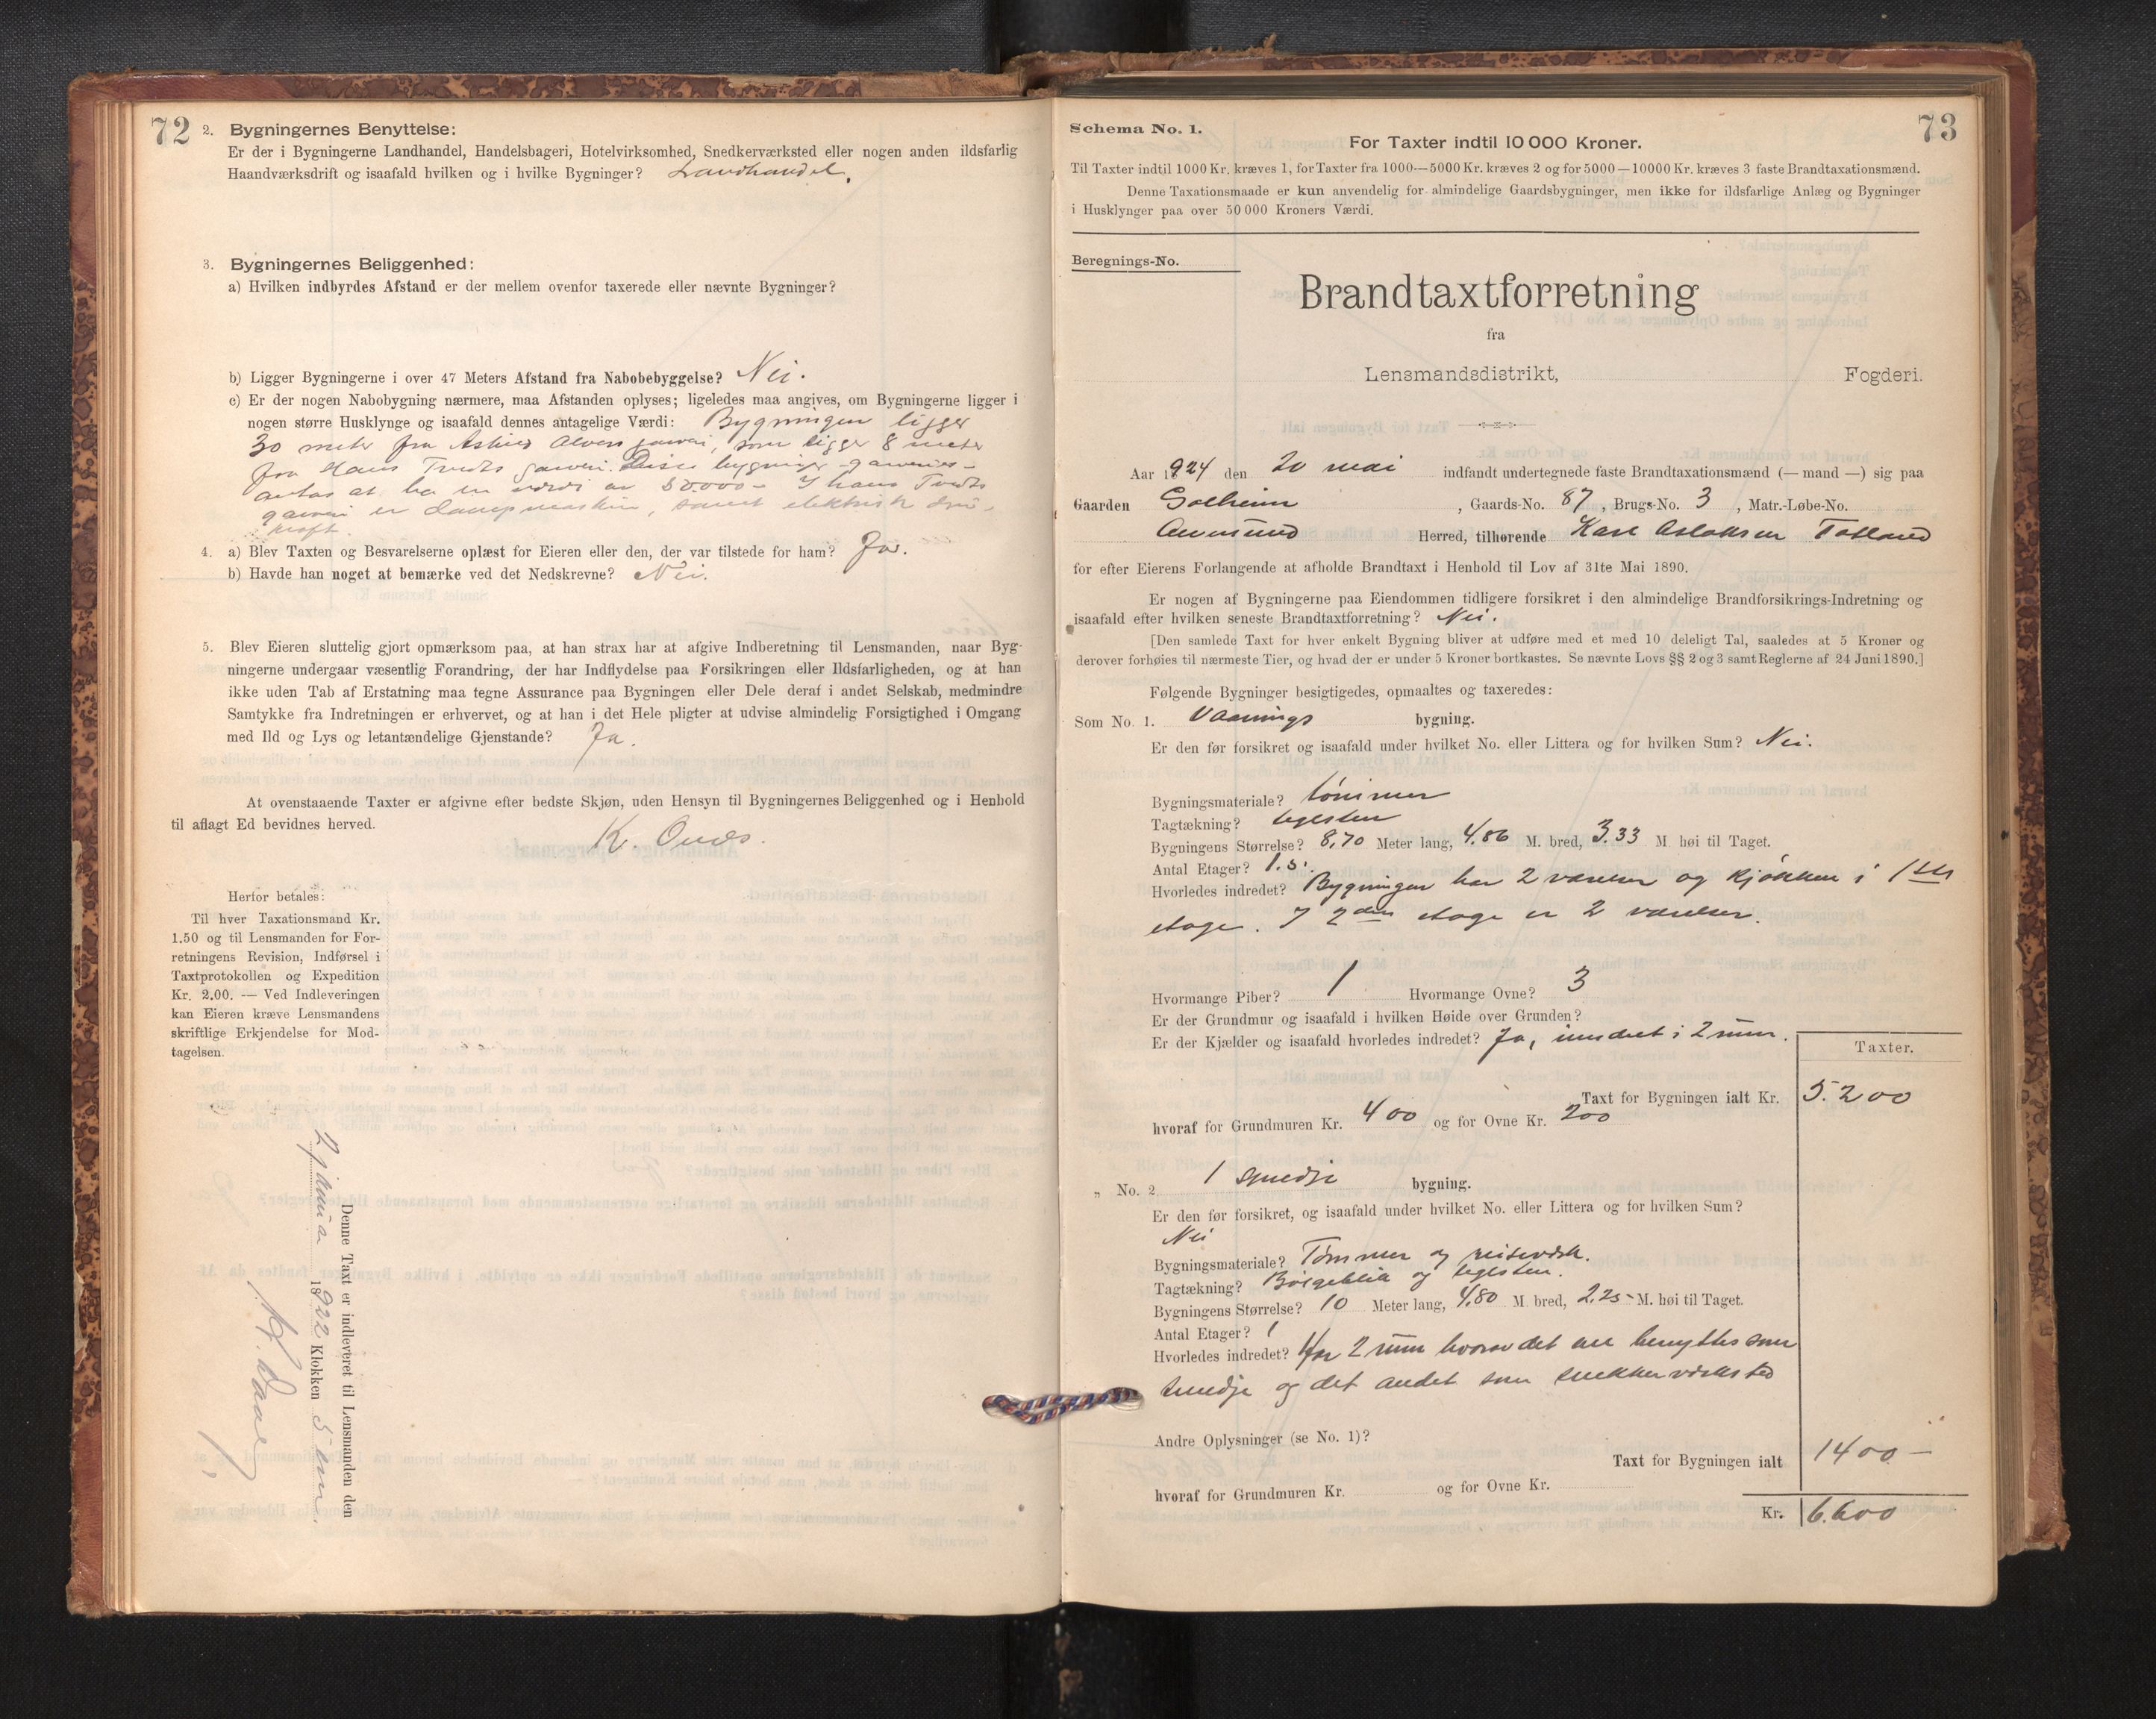 72
2. Bygningernes Benyttelse:
Er der i Bygningerne Landhandel, Handelsbageri, Hotelvirksomhed, Snedkerværksted eller nogen anden ildsfarlig
Haandværksdrift og isaafald hvilken og i hvilke Bygninger? Landhandel.
3. Bygningernes Beliggenhed:
a) Hvilken indbyrdes Afstand er der mellem ovenfor taxerede eller nævnte Bygninger?
b) Ligger Bygningerne i over 47 Meters Afstand fra Nabobebyggelse? Nei.
c) Er der nogen Nabobygning nærmere, maa Afstanden oplyses; ligeledes maa angives, om Bygningerne ligger i
nogen større Husklynge og isaafald dennes antagelige Værdi: Bygningen ligger
30 meter fra garveri, som ligger 8 meter
fra Hans Tveits garveri. Disse bygninger garverier
antas at ha en værdi av 50.000 - I Hans Tveits
garveri er dampmaskin, samt elektrisk driv-
kraft.
4. a) Blev Taxten og Besvarelserne oplæst for Eieren eller den, der var tilstede for ham? Ja.
b) Havde han noget at bemærke ved det Nedskrevne? Nei.
5. Blev Eieren sluttelig gjort opmærksom paa, at han strax har at afgive Indberetning til Lensmanden, naar Byg-
ningerne undergaar væsentlig Forandring, der har Indflydelse paa Forsikringen eller Ildsfarligheden, og at han
ikke uden Tab af Erstatning maa tegne Assurance paa Bygningen eller Dele deraf i andet Selskab, medmindre
Samtykke fra Indretningen er erhvervet, og at han i det Hele pligter at udvise almindelig Forsigtighed i Omgang
med Ild og Lys og letantændelige Gjenstande? Ja.
At ovenstaaende Taxter er afgivne efter bedste Skjøn, uden Hensyn til Bygningernes Beliggenhed og i Henhold
til aflagt Ed bevidnes herved.
K.
Herfor betales:
Til hver Taxationsmand Kr.
1.50 og til Lensmanden for For-
retningens Revision, Indførsel i
Taxtprotokollen og Expedition
Kr. 2.00. — Ved Indleveringen
kan Eieren kræve Lensmandens
skriftlige Erkjendelse for Mod-
tagelsen.
Denne Taxt er indleveret til Lensmanden den
1922 Klokken 5 em.
73
Schema No. 1.
For Taxter indtil 10 000 Kroner.
Til Taxter indtil 1000 Kr. kræves 1, for Taxter fra 1000—5000 Kr. kræves 2 og for 5000—10000 Kr. kræves 3 faste Brandtaxationsmænd.
Denne Taxationsmaade er kun anvendelig for almindelige Gaardsbygninger, men ikke for ildsfarlige Anlæg og Bygninger
i Husklynger paa over 50 000 Kroners Værdi.
Beregnings-No.
Brandtaxtforretning
fra
Lensmandsdistrikt, Fogderi.
Aar 1924 den 20 mai indfandt undertegnede faste Brandtaxationsmænd (— mand —) sig paa
Gaarden Solheim, Gaards-No. 87, Brugs-No. 3, Matr.-Løbe-No.
Herred, tilhørende Karl Aslaksen Totland
for efter Eierens Forlangende at afholde Brandtaxt i Henhold til Lov af 31te Mai 1890.
Er nogen af Bygningerne paa Eiendommen tidligere forsikret i den almindelige Brandforsikrings-Indretning og
isaafald efter hvilken seneste Brandtaxtforretning? Nei.
[Den samlede Taxt for hver enkelt Bygning bliver at udføre med et med 10 deleligt Tal, saaledes at 5 Kroner og
derover forhøies til nærmeste Tier, og hvad der er under 5 Kroner bortkastes. Se nævnte Lovs §§ 2 og 3 samt Reglerne af 24 Juni 1890.]
Følgende Bygninger besigtigedes, opmaaltes og taxeredes:
Som No. 1. Vaanings bygning.
Er den før forsikret og isaafald under hvilket No. eller Littera og for hvilken Sum? Nei.
Bygningsmateriale? tømmer
Tagtækning? teglsten
Bygningens Størrelse? 8,70 Meter lang, 4.86 M. bred, 3.33 M. høi til Taget.
Antal Etager? 1.s.
Hvorledes indredet? Bygningen har 2 værelser og kjøkken i 1ste
etage. I 2den etage er 2 værelser.
Hvormange Piber? 1 Hvormange Ovne? 3
Er der Grundmur og isaafald i hvilken Høide over Grunden?
Er der Kjælder og isaafald hvorledes indredet? Ja, inndeet i 2 rum.
Taxter.
Taxt for Bygningen ialt Kr. 5.200
hvoraf for Grundmuren Kr. 400 og for Ovne Kr. 200
„ No. 2 1 smedje bygning.
Er den før forsikret, og isaafald under hvilket No. eller Littera og for hvilken Sum?
Nei
Bygningsmateriale? Tømmer og reisverk.
Tagtækning? Bølgeblik og teglsten.
Bygningens Størrelse? 10 Meter lang, 4.80 M. bred, 2.25 M. høi til Taget.
Antal Etager? 1
Hvorledes indredet? Har 2 rum hvorav det ene benyttes som
smedje og det andet som snekkerværksted
Andre Oplysninger (se No. 1)?
Taxt for Bygningen ialt 1400 —
hvoraf for Grundmuren Kr. og for Ovne Kr.
Kr. 6.600